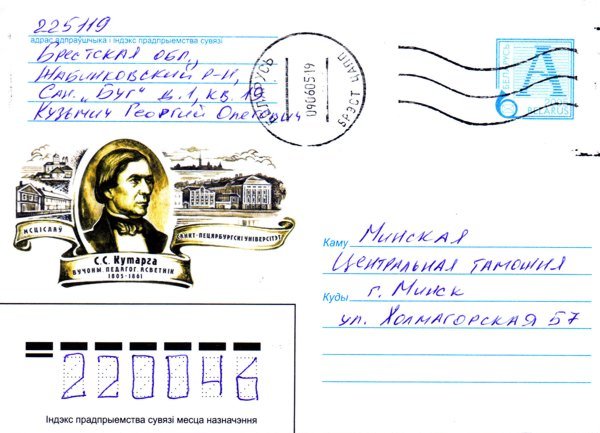 225119
адрас адпраўшчыка і індэкс прадпрыемства сувязі
Брестская обл.,
Жабинковский р-н,
Сан. „Буг" д.1, кв.19
Кузьмич Георгий Олегович
БЕЛАРУСЬ
09060519
БРЭСТ ЦАПП
БЕЛАРУСЬ
A
BELARUS
МСЦІСЛАЎ
САНКТ-ПЕЦЯРБУРГСКІ УНІВЕРСІТЭТ
С.С. Кутарга
ВУЧОНЫ ПЕДАГОГ, АСВЕТНІК
1805-1861
Каму
Минская
Центральная таможня
Куды
г. Минск
ул. Холмагорская 57
220046
Індэкс прадпрыемства сувязі месца назначэння